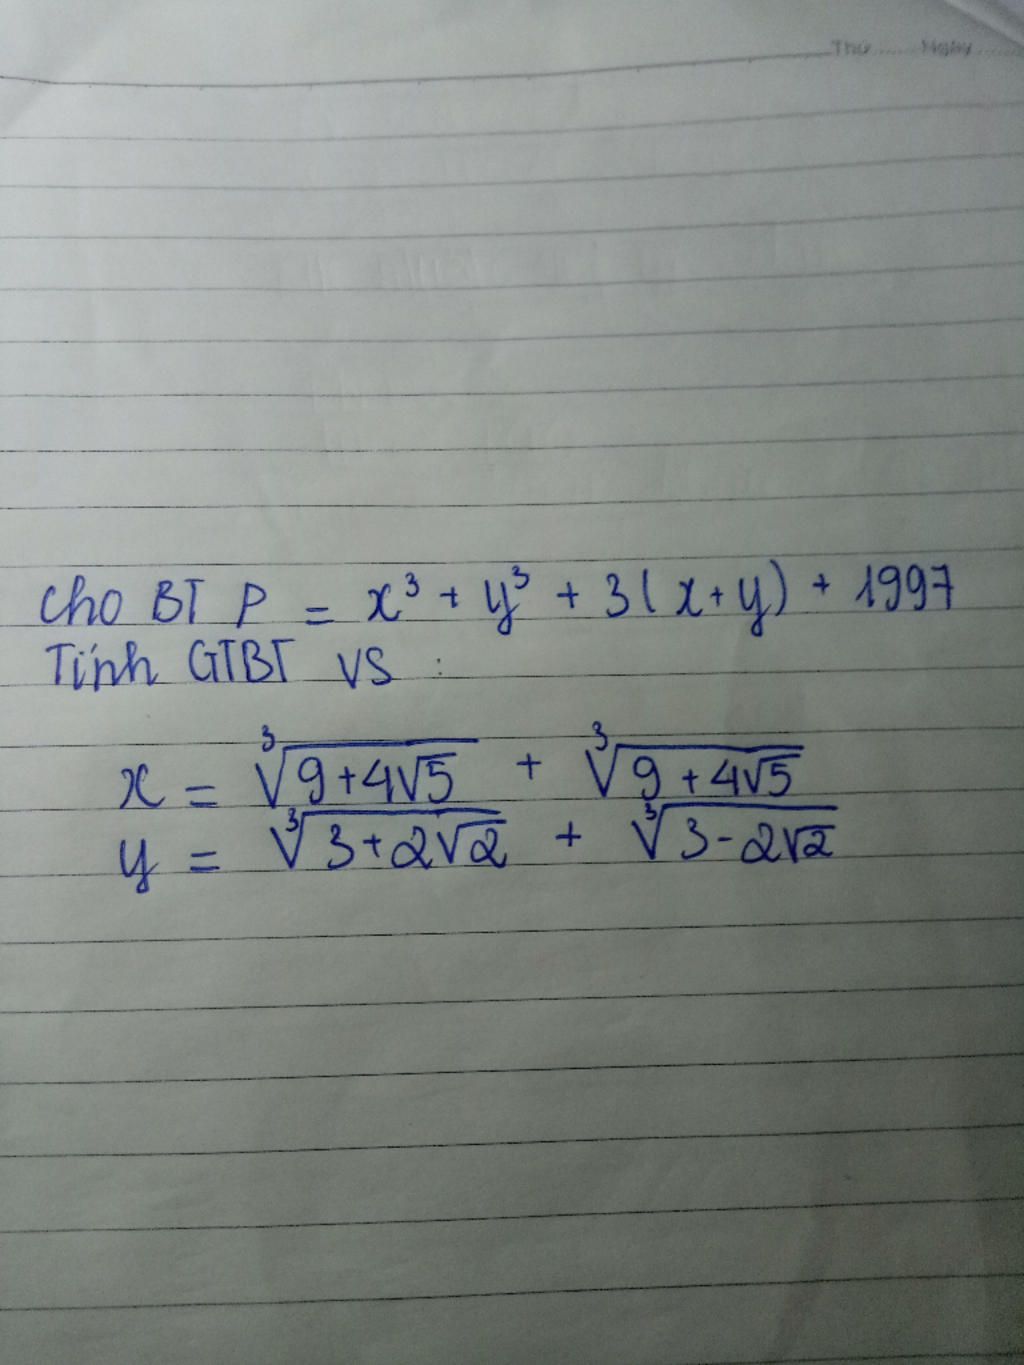 Thứ........Ngày........
Cho BT P = x³ + y³ + 3(x+y) + 1997
Tính GTBT VS :
x = ∛(9+4√5) + ∛(9+4√5)
y = ∛(3+2√2) + ∛(3-2√2)